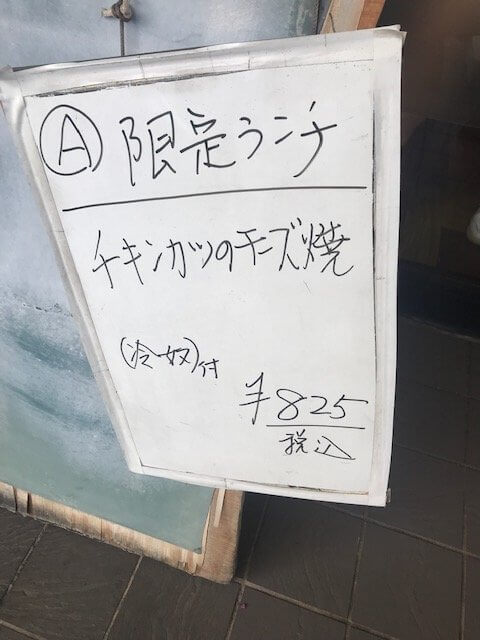 Ⓐ 限定ランチ
チキンカツのチーズ焼
(冷奴)付
¥825
税込